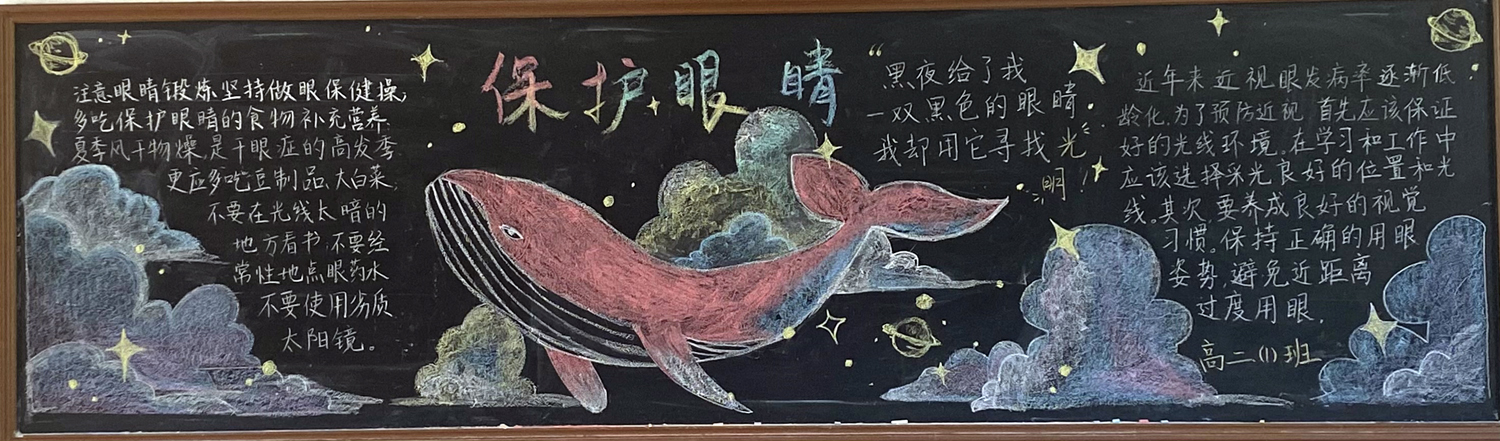 保护眼睛
注意眼睛锻炼坚持做眼保健操,
多吃保护眼睛的食物补充营养.
夏季风干物燥,是干眼症的高发季
更应多吃豆制品、大白菜,
不要在光线太暗的
地方看书,不要经
常性地点眼药水
不要使用劣质
太阳镜。
“黑夜给了我
一双黑色的眼睛
我却用它寻找光
明!”
近年来近视眼发病率逐渐低
龄化.为了预防近视 首先应该保证
好的光线环境。在学习和工作中
应该选择采光良好的位置和光
线。其次,要养成良好的视觉
习惯。保持正确的用眼
姿势,避免近距离
过度用眼,
高二(1)班